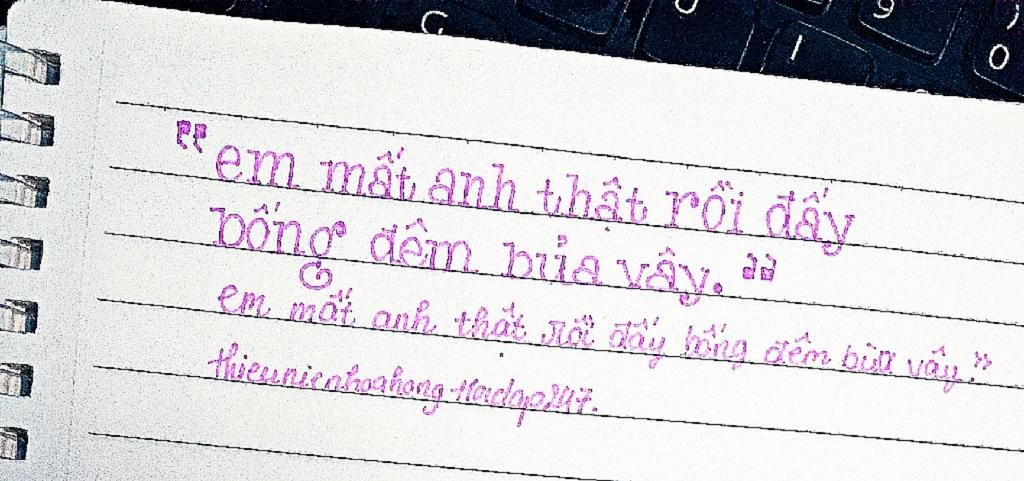 "em mất anh thật rồi đấy
bống đêm bủa vây."
em mất anh thất rồi đấy bống đêm bủa vây."
thieunienhoahong